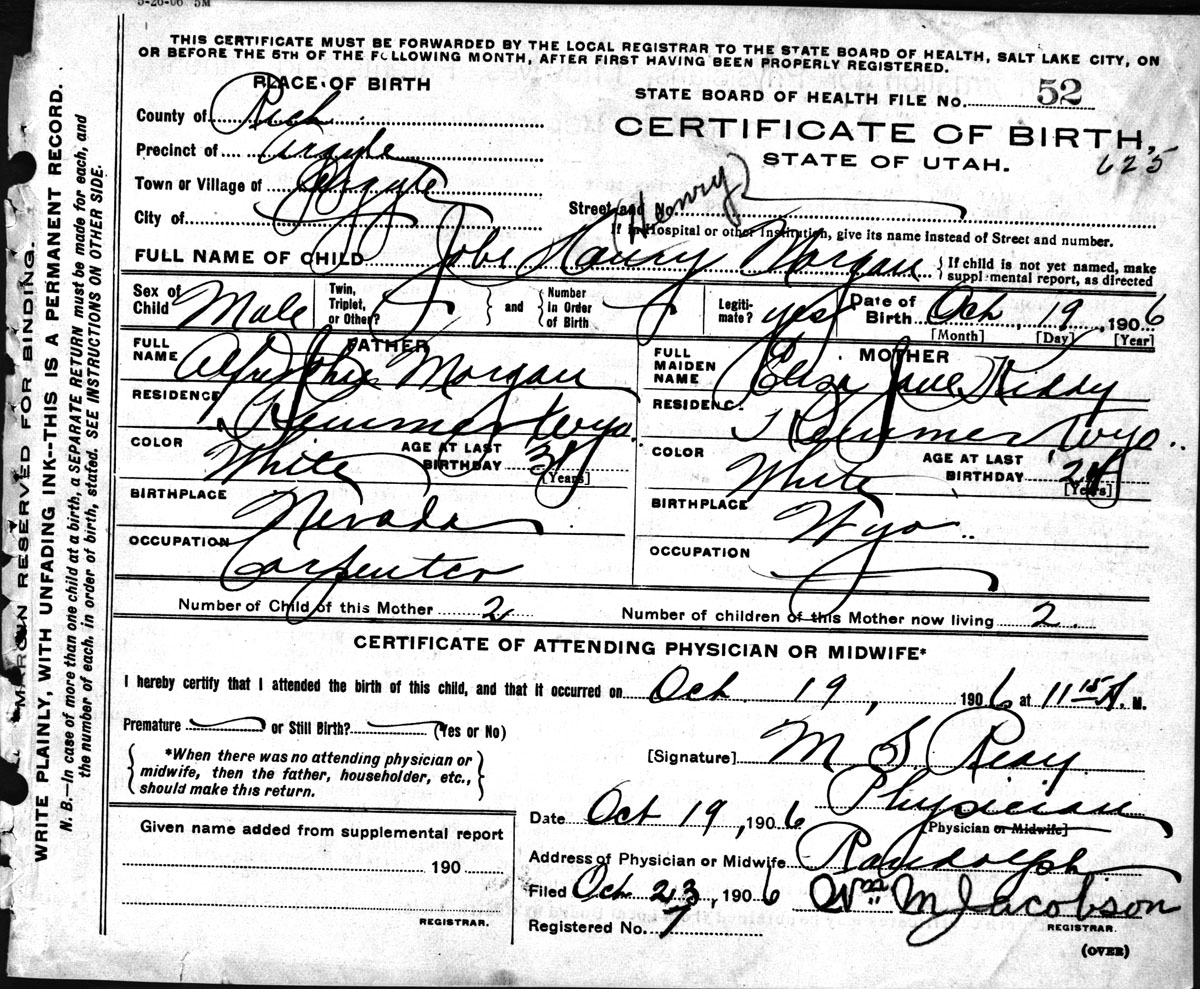 5-26-06 5M
THIS CERTIFICATE MUST BE FORWARDED BY THE LOCAL REGISTRAR TO THE STATE BOARD OF HEALTH, SALT LAKE CITY, ON
OR BEFORE THE 5TH OF THE FOLLOWING MONTH, AFTER FIRST HAVING BEEN PROPERLY REGISTERED.
PLACE OF BIRTH
STATE BOARD OF HEALTH FILE NO. 52
County of Rich
CERTIFICATE OF BIRTH,
Precinct of Argyle
STATE OF UTAH. 625
Town or Village of Argyle
City of
Street and No.
Henry
If in Hospital or other Institution, give its name instead of Street and number.
FULL NAME OF CHILD Morgan
{If child is not yet named, make
supplemental report, as directed
Sex of Child Male
Twin, Triplet, or Other?
and
Number in Order of Birth
Legitimate? yes
Date of Birth Oct, 19, 1906
[Month] [Day] [Year]
FATHER
FULL NAME Morgan
RESIDENCE Kemmerer Wyo.
COLOR White
AGE AT LAST BIRTHDAY
[Years]
BIRTHPLACE Nevada
OCCUPATION Carpenter
MOTHER
FULL MAIDEN NAME Eliza Jane
RESIDENCE Kemmerer Wyo.
COLOR White
AGE AT LAST BIRTHDAY
[Years]
BIRTHPLACE Wyo
OCCUPATION
Number of Child of this Mother 2
Number of children of this Mother now living 2.
CERTIFICATE OF ATTENDING PHYSICIAN OR MIDWIFE*
I hereby certify that I attended the birth of this child, and that it occurred on Oct 19, 1906 at 11 15 A. M.
Premature or Still Birth? (Yes or No)
*When there was no attending physician or
midwife, then the father, householder, etc.,
should make this return.
[Signature] M S Reay
Physician
[Physician or Midwife]
Date Oct 19, 1906
Address of Physician or Midwife Randolph
Filed Oct 23, 1906
Wm M Jacobson
REGISTRAR.
Registered No. 7
(OVER)
Given name added from supplemental report
190
REGISTRAR.
MARGIN RESERVED FOR BINDING.
WRITE PLAINLY, WITH UNFADING INK--THIS IS A PERMANENT RECORD.
N. B.—In case of more than one child at a birth, a SEPARATE RETURN must be made for each, and
the number of each, in order of birth, stated. SEE INSTRUCTIONS ON OTHER SIDE.